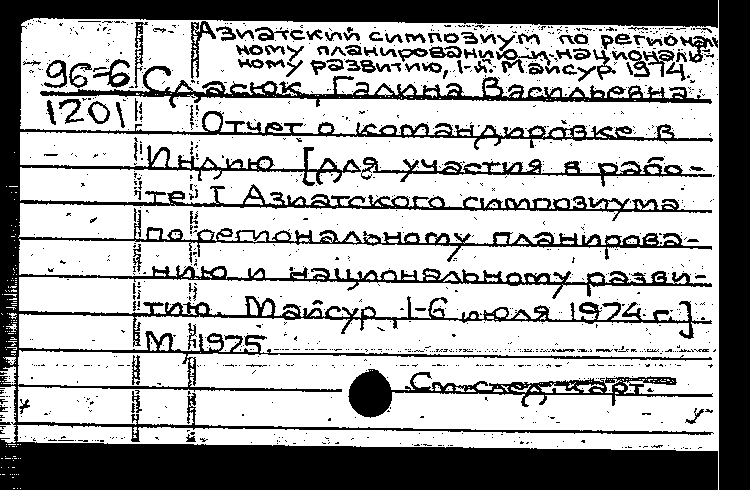 Азиатский симпозиум по региональ-
ному планированию и националь-
ному развитию, I-й. Майсур. 1974.
96=6 Сдасюк, Галина Васильевна.
1201
Отчет о командировке в
Индию [для участия в рабо-
те I Азиатского симпозиума
по региональному планирова-
нию и национальному разви-
тию. Майсур, 1-6 июля 1974 г.].
М, 1975.
См. след. карт.